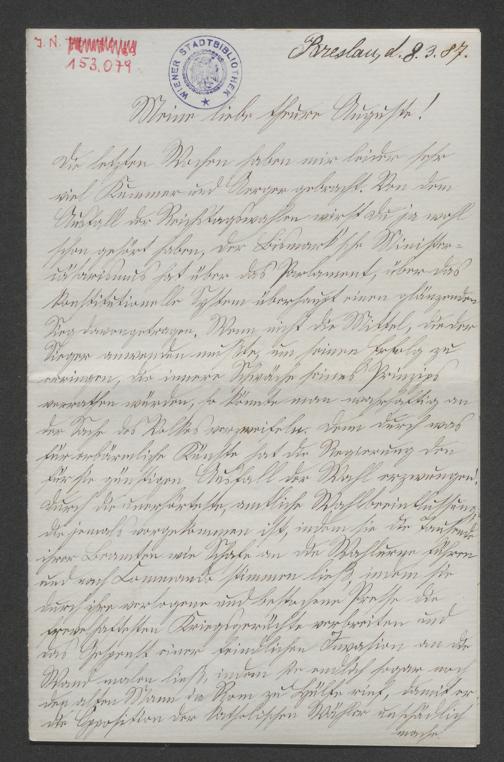 J. N.
153.079
WIENER STADTBIBLIOTHEK
Breslau, d. 8. 3. 87.
Meine liebe theure Auguste!
Die letzten Wochen haben mir leider sehr
viel Kummer und Aerger gebracht. Von dem
Ausfall der Reichstagswahlen wirst du ja wohl
schon gehört haben, der Bismark'sche Minister-
cäsarismus hat über das Parlament, über das
konstitutionelle System überhaupt einen glänzenden
Sieg davongetragen. Wenn nicht die Mittel, die der
Sieger anwenden mußte, um seinen Erfolg zu
erringen, die innere Schwäche seines Prinzips
verrathen würden, so könnte man wahrhaftig an
der Sache des Volkes verzweifeln. Denn durch was
für erbärmliche Künste hat die Regierung den
für sie günstigen Ausfall der Wahl erzwungen!
Durch die unerhörteste amtliche Wahlbeeinflussung,
die jemals vorgekommen ist, indem sie die Tausende
ihrer Beamten wie Schafe an die Wahlurne führen
und nach Commando stimmen ließ, indem sie
durch ihre verlogene und bestochene Presse die
frevelhaftesten Kriegsgerüchte verbreiten und
das Gespenst einer feindlichen Invasion an die
Wand malen ließ, indem sie endlich sogar noch
den alten Mann in Rom zu Hülfe rief, damit er
die Opposition der katholischen Wähler unschädlich
mache